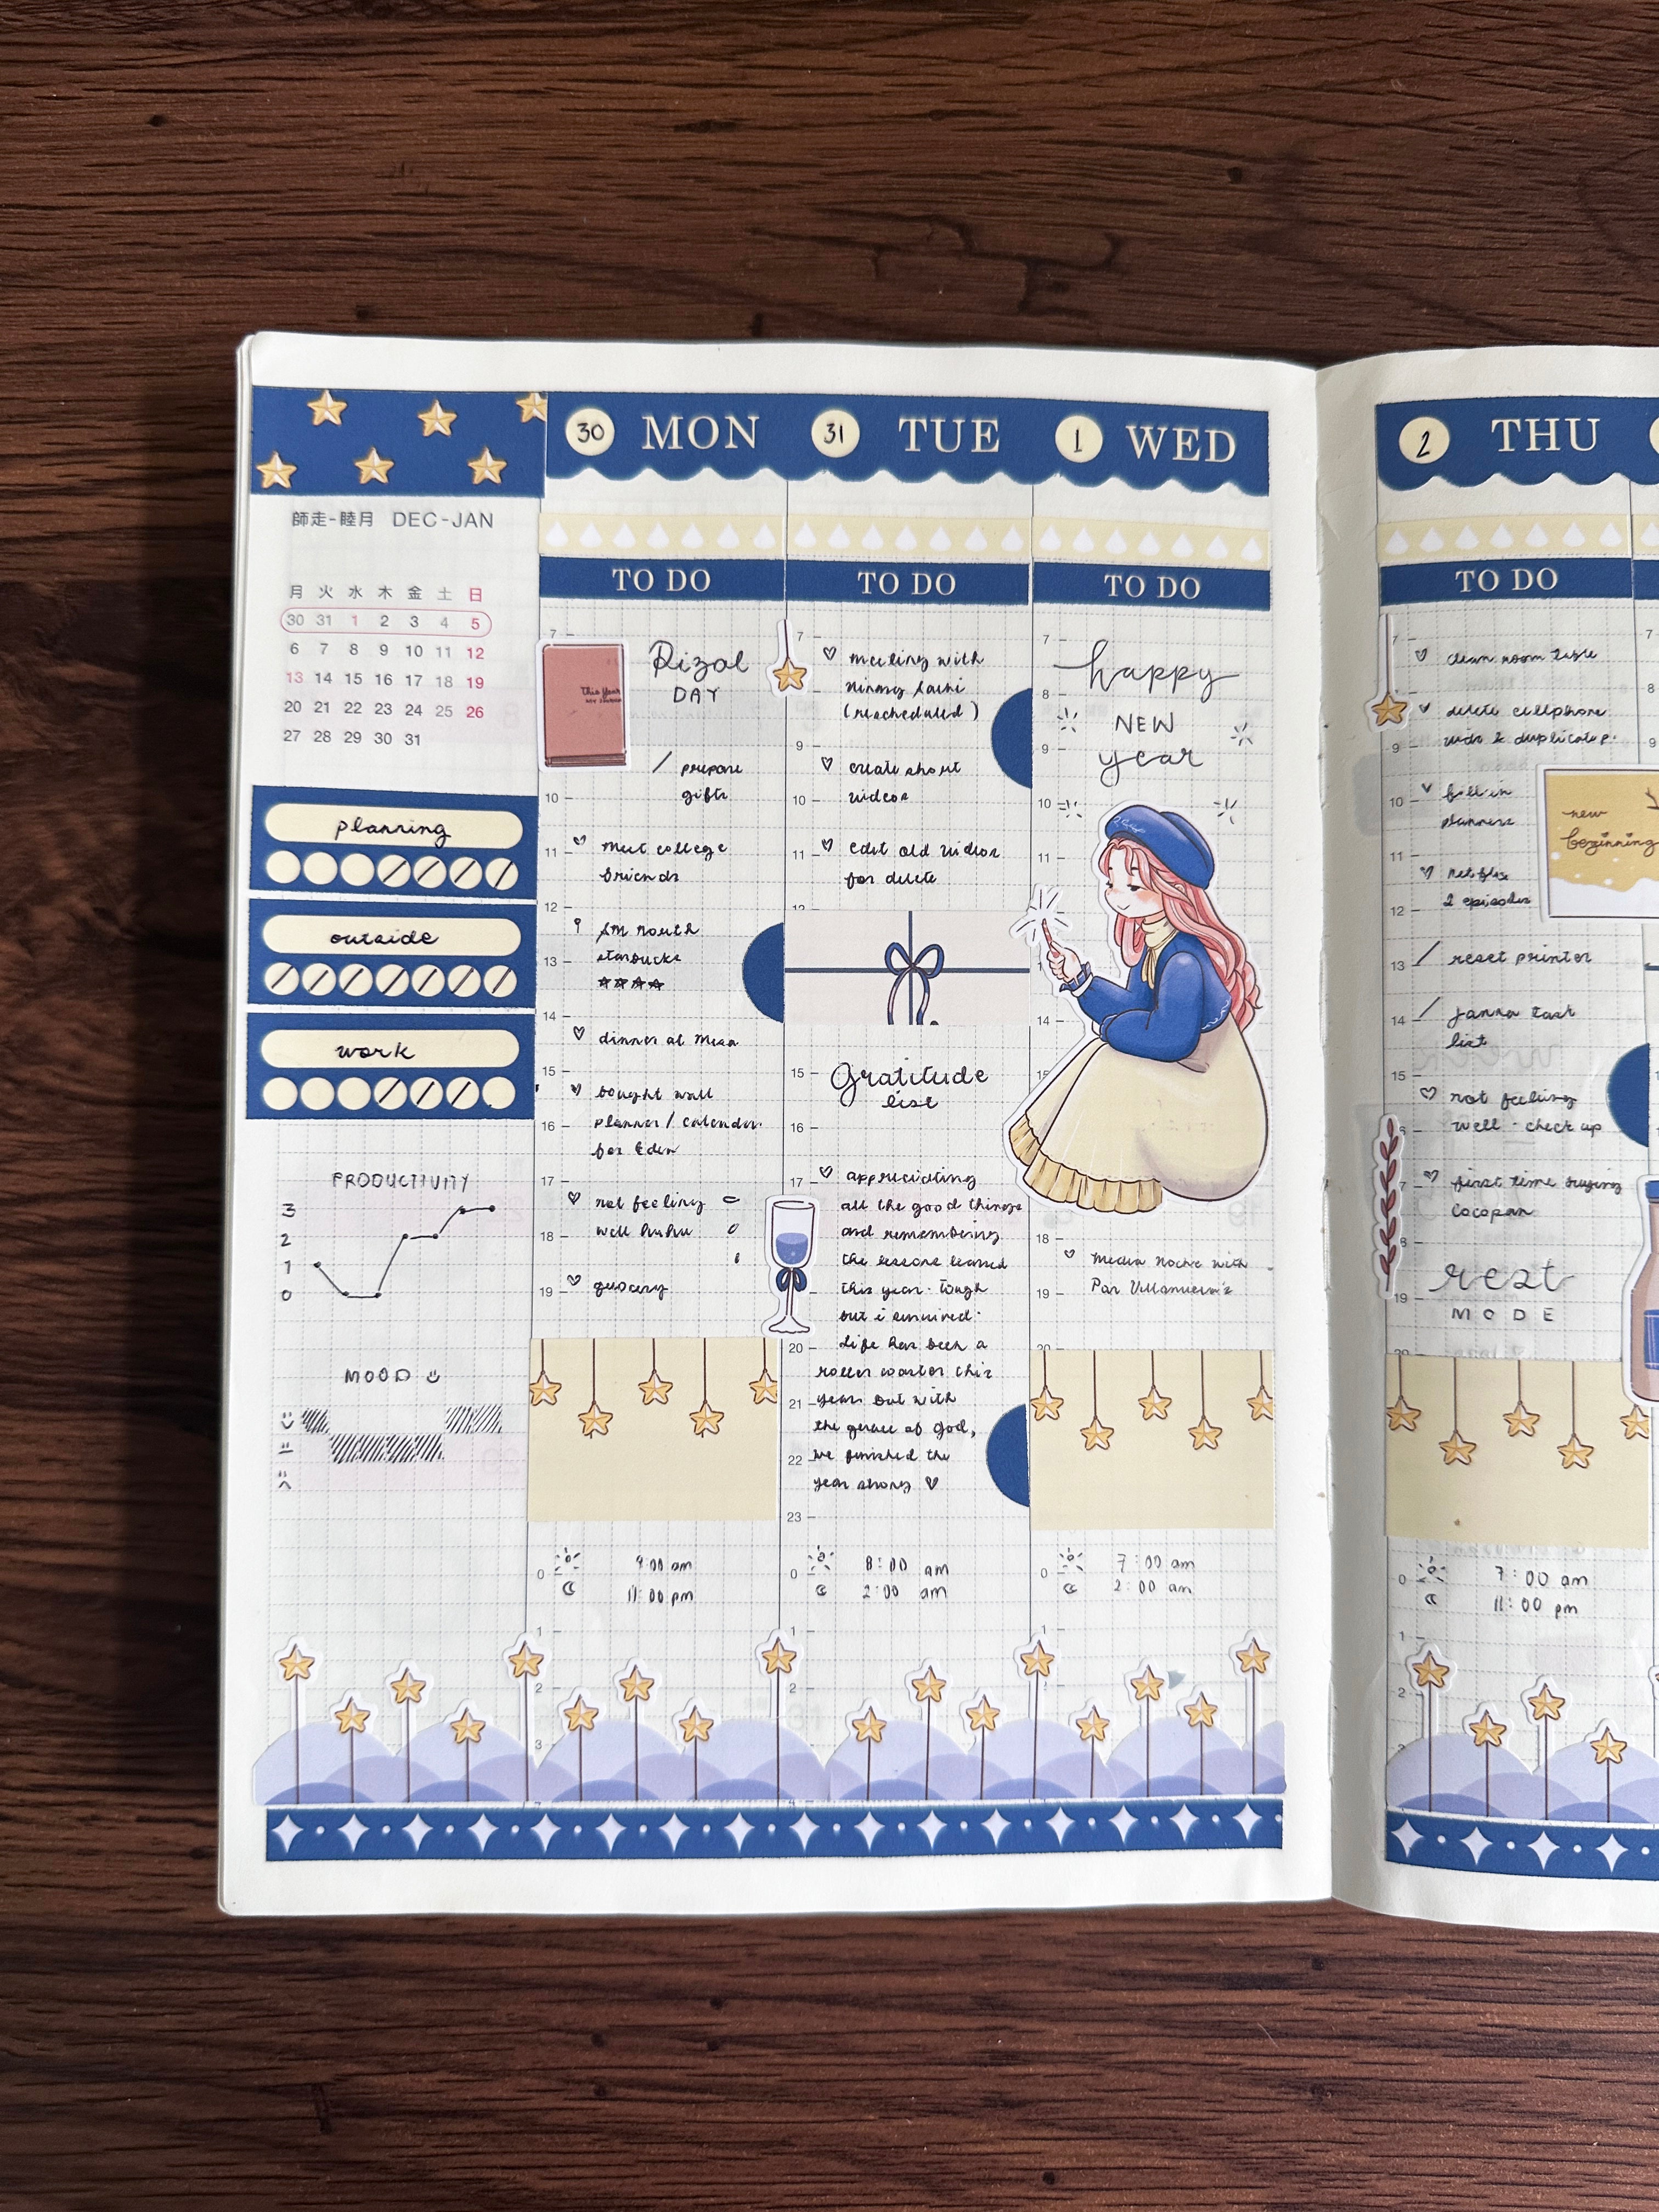 師走-睦月 DEC-JAN
月 火 水 木 金 土 日
30 31 1 2 3 4 5
6 7 8 9 10 11 12
13 14 15 16 17 18 19
20 21 22 23 24 25 26
27 28 29 30 31
planning
outside
work
PRODUCTIVITY
3
2
1
0
MOOD
30 MON
TO DO
7
10
11
12
13
14
15
16
17
18
19
0
1
2
3
This Year
Rizal
DAY
/ prepare
gifts
meet college
friends
SM North
starbucks
dinner at Mesa
bought wall
planner / calendar
for Eden
not feeling
well huhu
grocery
9:00 am
11:00 pm
31 TUE
TO DO
7
9
10
11
12
15
16
17
20
21
22
23
0
1
2
meeting with
(rescheduled)
create short
videos
edit old videos
for delete
Gratitude
list
appreciating
all the good things
and remembering
the lessons learned
this year. tough
but i survived.
Life has been a
roller coaster this
year but with
the grace of God,
we finished the
year strong
8:00 am
2:00 am
1 WED
TO DO
7
8
9
10
11
14
15
18
19
20
0
1
happy
NEW
year
Media Noche with
Villanueva's
7:00 am
2:00 am
2 THU
TO DO
7
9
10
11
12
13
14
15
19
20
0
1
2
clean room table
delete cellphone
vids & duplicate p.
fill in
planners
netflix
2 episodes
/ reset printer
/ Janna task
list
not feeling
well - check up
first time buying
Cocopan
rest
MODE
7:00 am
11:00 pm
new
beginning
7
8
9